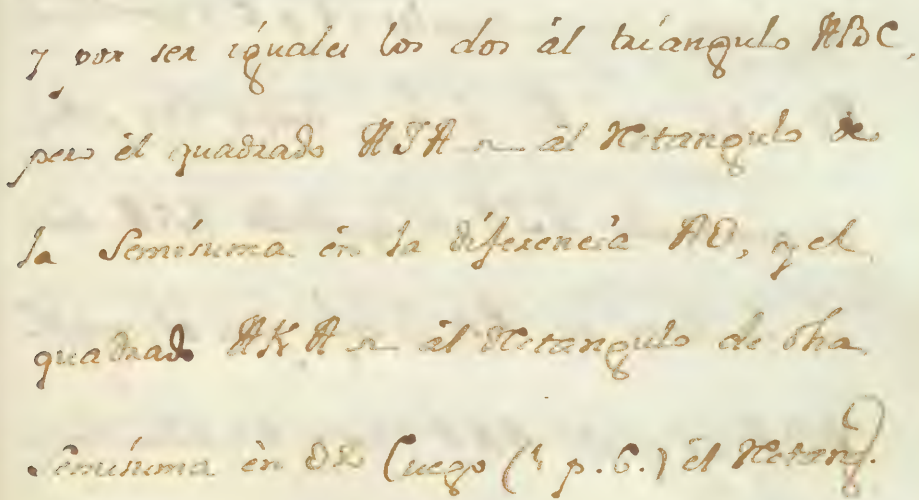 y por ser iguales los dos ál triangulo ABC,
pero él quadrado AIA ál Retangulo de
la Semisuma én la diferencia AD, y el
quadrado AKA ál Retangulo de dha
Semisuma én Luego ( p. 6.) él Retang.